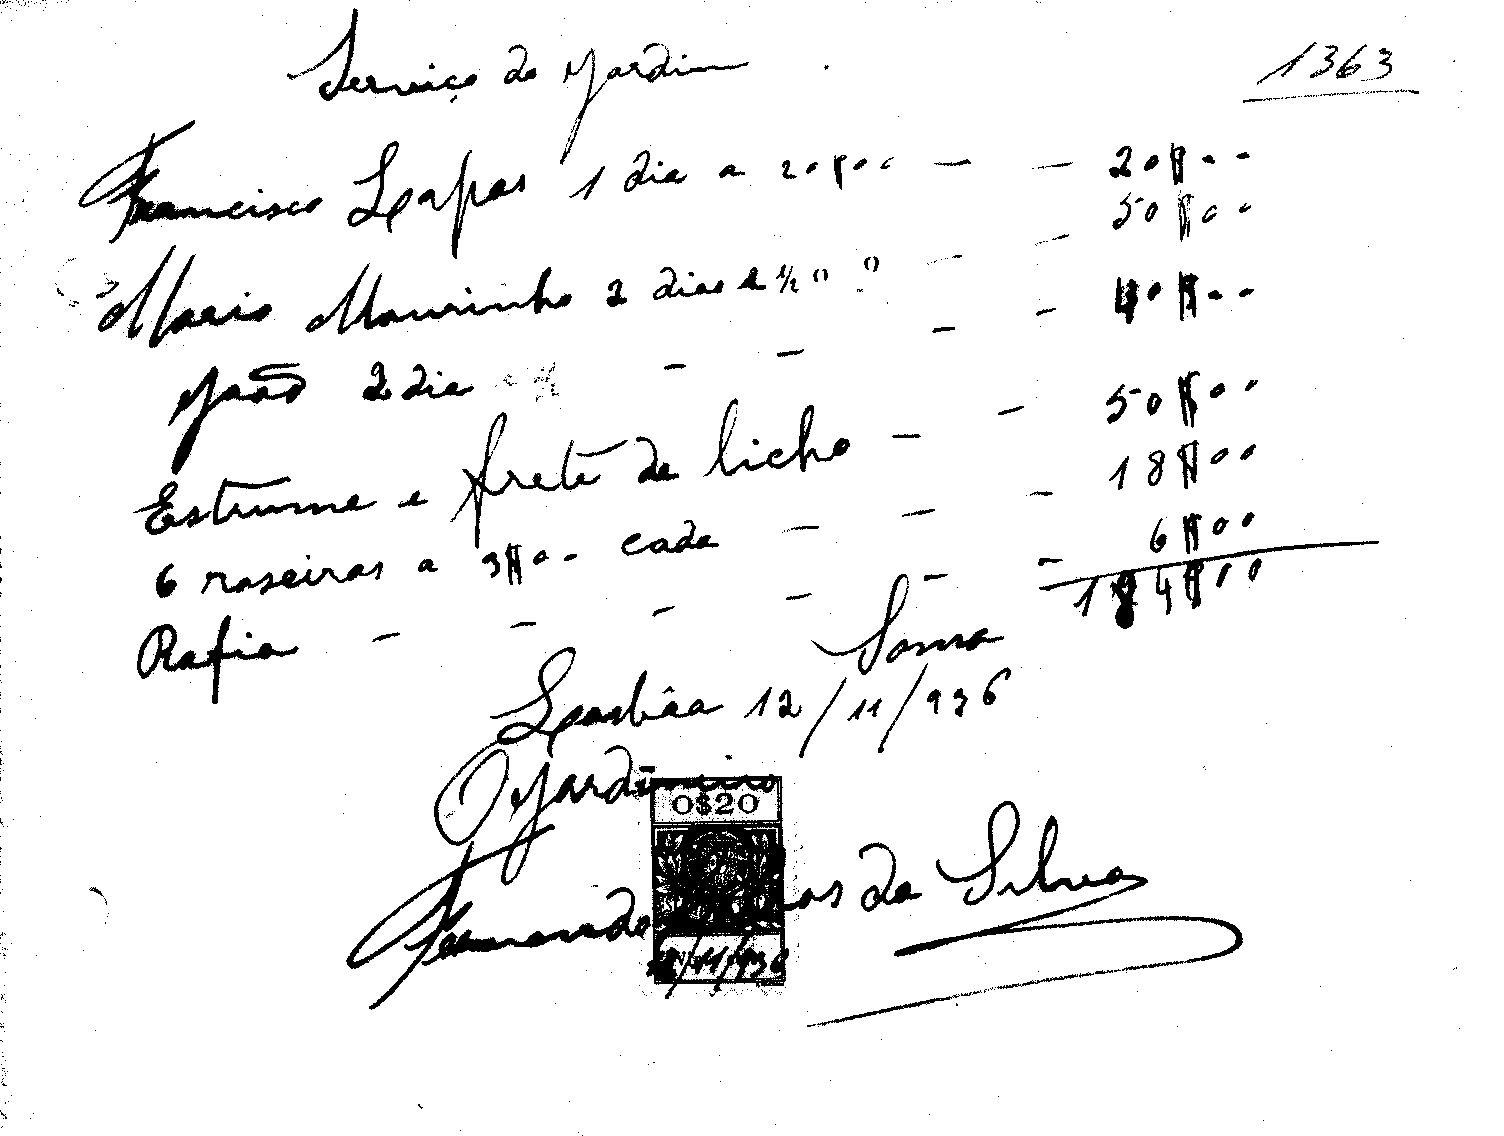 1363
Serviço do Jardim
Francisco Lapas 1 dia a 20$00 — — 20$00
Mario Mourinho 2 dias e ½ " " — — 50$00
João 2 dia — — — — 40$00
Estrume e frete de licho — — 50$00
6 roseiras a 3$00 cada — — — 18$00
Rafia — — — — — — 6$00
Soma 184$00
Lisbôa 12/11/936
O Jardineiro
0$20
Fernando da Silva
12/11/936